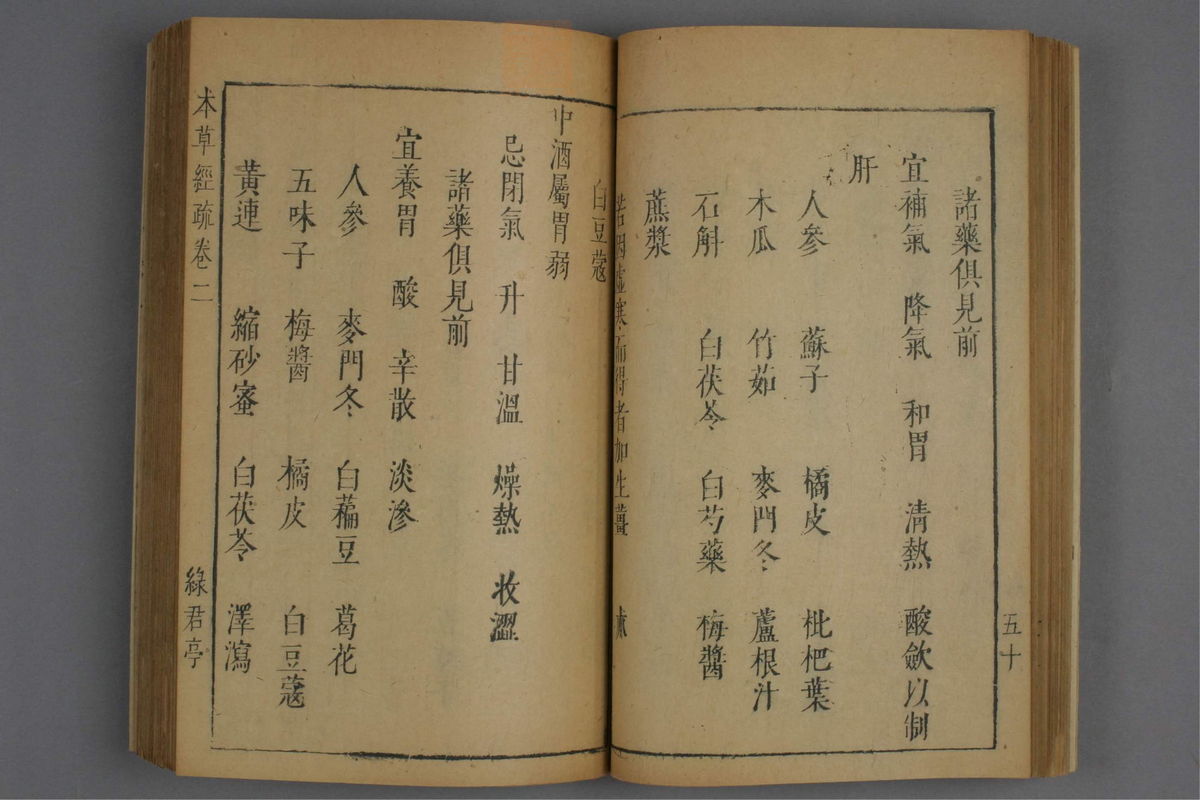 五十
諸藥俱見前
宜補氣 降氣 和胃 清熱 酸歛以制
肝
人參 蘇子 橘皮 枇杷葉
木瓜 竹茹 麥門冬 蘆根汁
石斛 白茯苓 白芍藥 梅醬
蔗漿
若因虛寒而得者加生薑
白豆蔻
中酒屬胃弱
忌閉氣 升 甘溫 燥熱 收澀
諸藥俱見前
宜養胃 酸 辛散 淡滲
人參 麥門冬 白藊豆 葛花
五味子 梅醬 橘皮 白豆蔻
黃連 縮砂蜜 白茯苓 澤瀉
本草經疏卷二 綠君亭